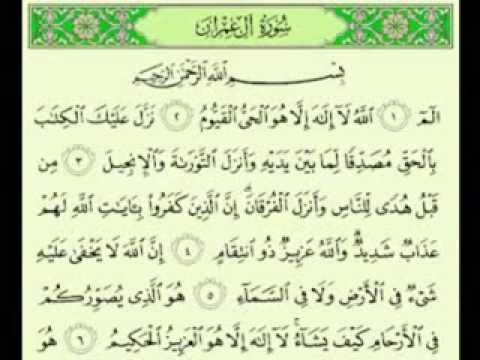 سُورَةُ آلِ عِمْرَان
بِسْمِ ٱللَّهِ ٱلرَّحْمَٰنِ ٱلرَّحِيمِ
الٓمٓ ١ ٱللَّهُ لَآ إِلَٰهَ إِلَّا هُوَ ٱلْحَىُّ ٱلْقَيُّومُ ٢ نَزَّلَ عَلَيْكَ ٱلْكِتَٰبَ
بِٱلْحَقِّ مُصَدِّقًا لِّمَا بَيْنَ يَدَيْهِ وَأَنزَلَ ٱلتَّوْرَىٰةَ وَٱلْإِنجِيلَ ٣ مِن
قَبْلُ هُدًى لِّلنَّاسِ وَأَنزَلَ ٱلْفُرْقَانَ ۗ إِنَّ ٱلَّذِينَ كَفَرُوا۟ بِـَٔايَٰتِ ٱللَّهِ لَهُمْ
عَذَابٌ شَدِيدٌ ۗ وَٱللَّهُ عَزِيزٌ ذُو ٱنتِقَامٍ ٤ إِنَّ ٱللَّهَ لَا يَخْفَىٰ عَلَيْهِ
شَىْءٌ فِى ٱلْأَرْضِ وَلَا فِى ٱلسَّمَآءِ ٥ هُوَ ٱلَّذِى يُصَوِّرُكُمْ
فِى ٱلْأَرْحَامِ كَيْفَ يَشَآءُ ۚ لَآ إِلَٰهَ إِلَّا هُوَ ٱلْعَزِيزُ ٱلْحَكِيمُ ٦ هُوَ